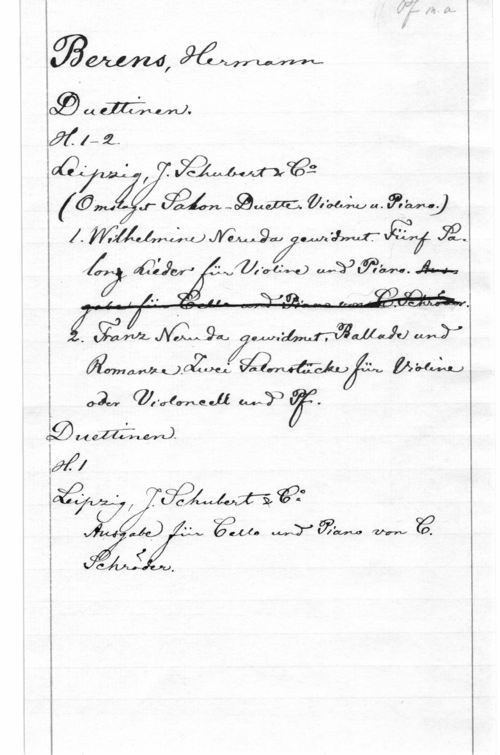 Pf m. a
Berens, Hermann
Duettinen.
H. 1-2.
Leipzig, J. Schubert & Co
(Omslagst Salon-Duette, Violine u. Piano.)
1. Wilhelmine Neruda gewidmet. Fünf Sa-
long Lieder für Violine und Piano. Aus-
gabe für Cello und Piano von C. Schröder.
2. Franz Neruda gewidmet, Ballade und
Romanze, Zwei Salonstücke für Violine
oder Violoncell und Pf.
Duettinen.
H. 1
Leipzig, J. Schubert & Co
Ausgabe für Cello und Piano von C.
Schröder.